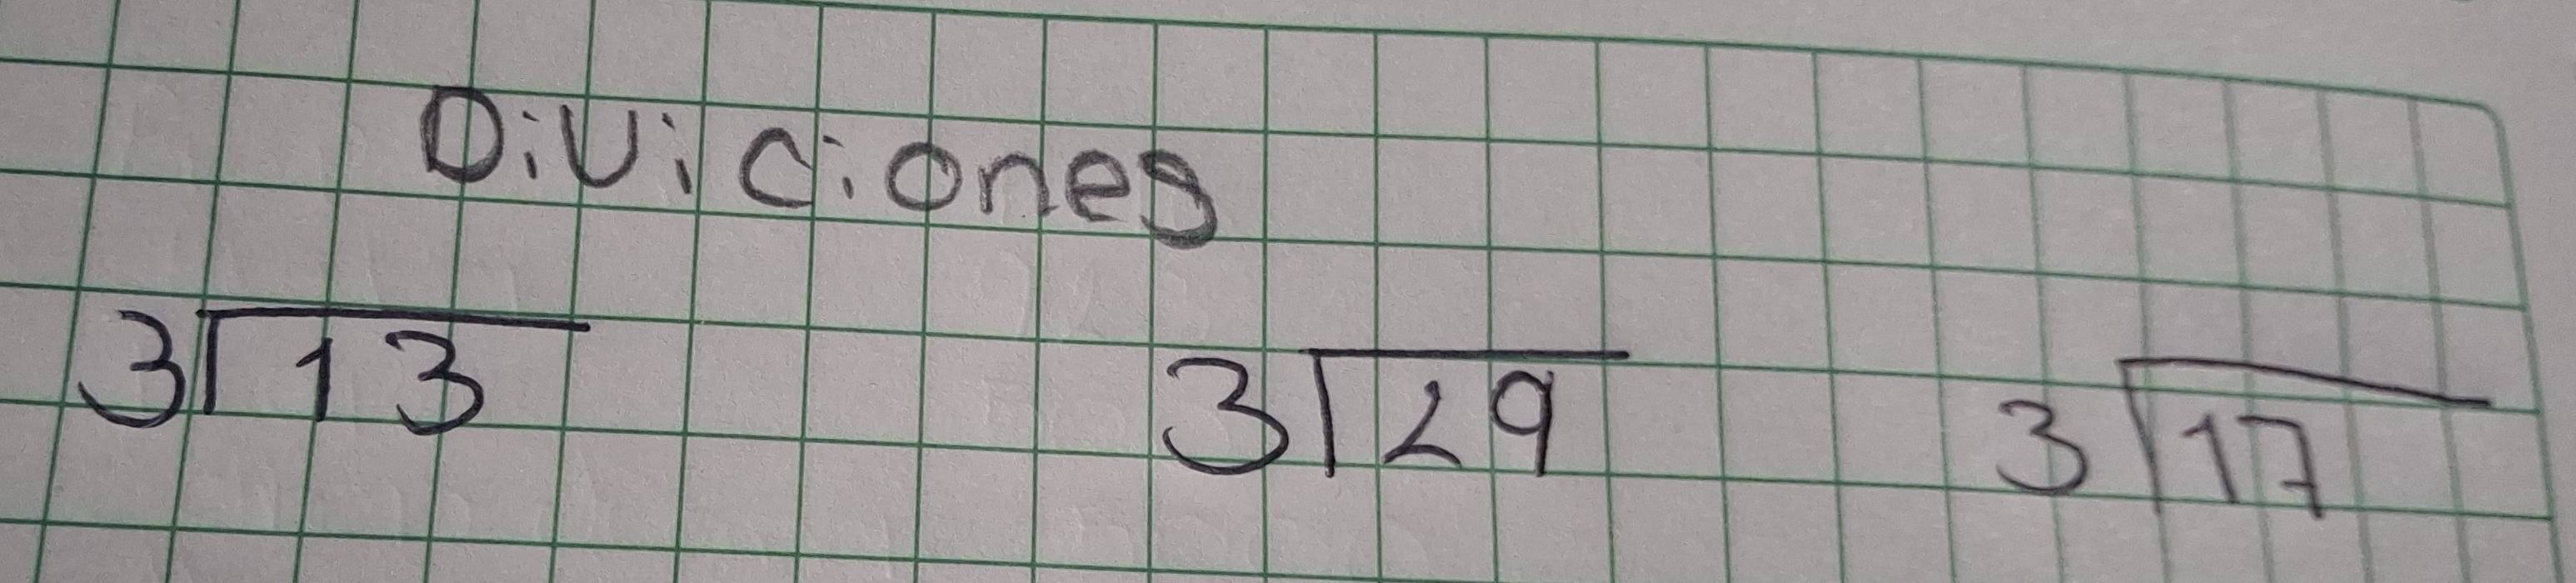 Diviciones
3 13 3 29 3 17